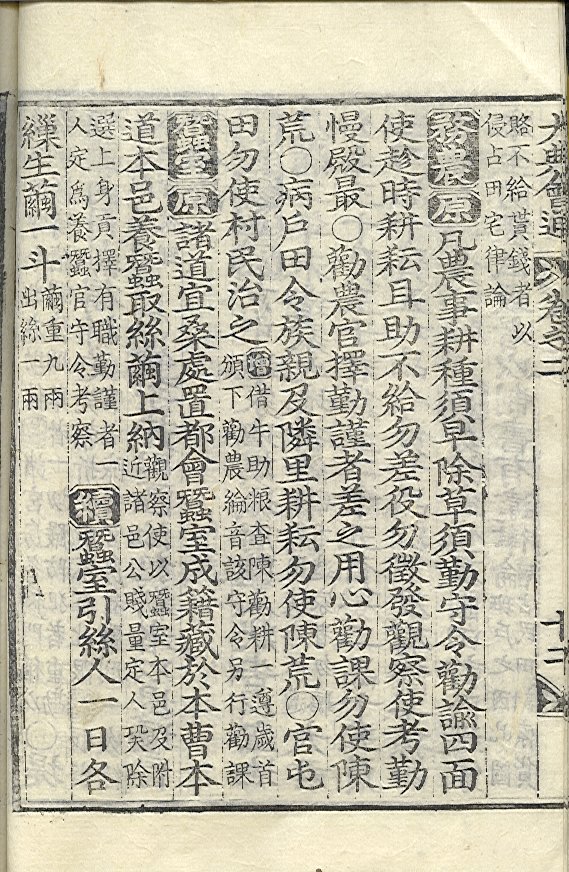 大典會通 卷之二 十二
賂不給貰錢者以
侵占田宅律論
務農 原 凡農事耕種須早除草須勤守令勸諭四面
使趁時耕耘且助不給勿差役勿徵發觀察使考勤
慢殿最○勸農官擇勤謹者差之用心勸課勿使陳
荒○病戶田令族親及隣里耕耘勿使陳荒○官屯
田勿使村民治之 增 借牛助粻査陳勸耕一遵歲首
頒下勸農綸音該守令另行勸課
蠶室 原 諸道宜桑處置都會蠶室成籍藏於本曹本
道本邑養蠶取絲繭上納 觀察使以蠶室本邑及附
近諸邑公賤量定人除
選上身貢擇有職勤謹者一
人定爲養蠶官守令考察
續 蠶室引絲人一日各
繅生繭一斗 繭重九兩
出絲一兩